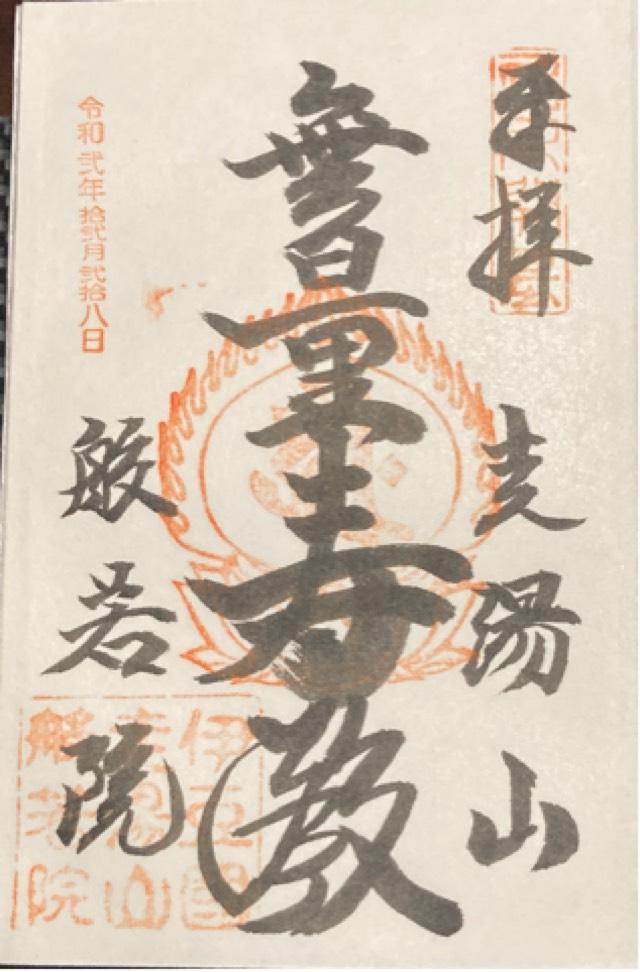 奉拝
走湯山
無量寿殿
令和弐年拾弐月弐拾八日
般若院
伊豆國
走湯山
般若院